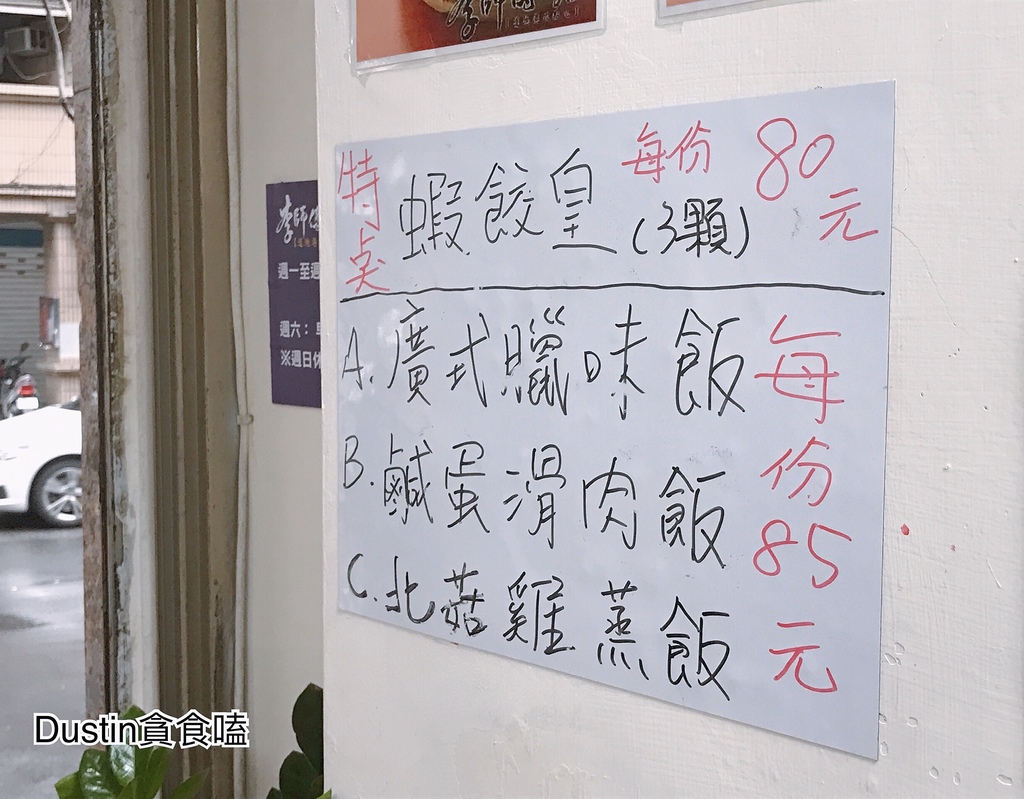 李師傅
週一至週
週六：
※週日休
特点 蝦餃皇 每份 80元
(3顆)
A. 廣式臘味飯
B. 鹹蛋滑肉飯
C. 北菇雞蒸飯
每份85元
Dustin貪食嗑